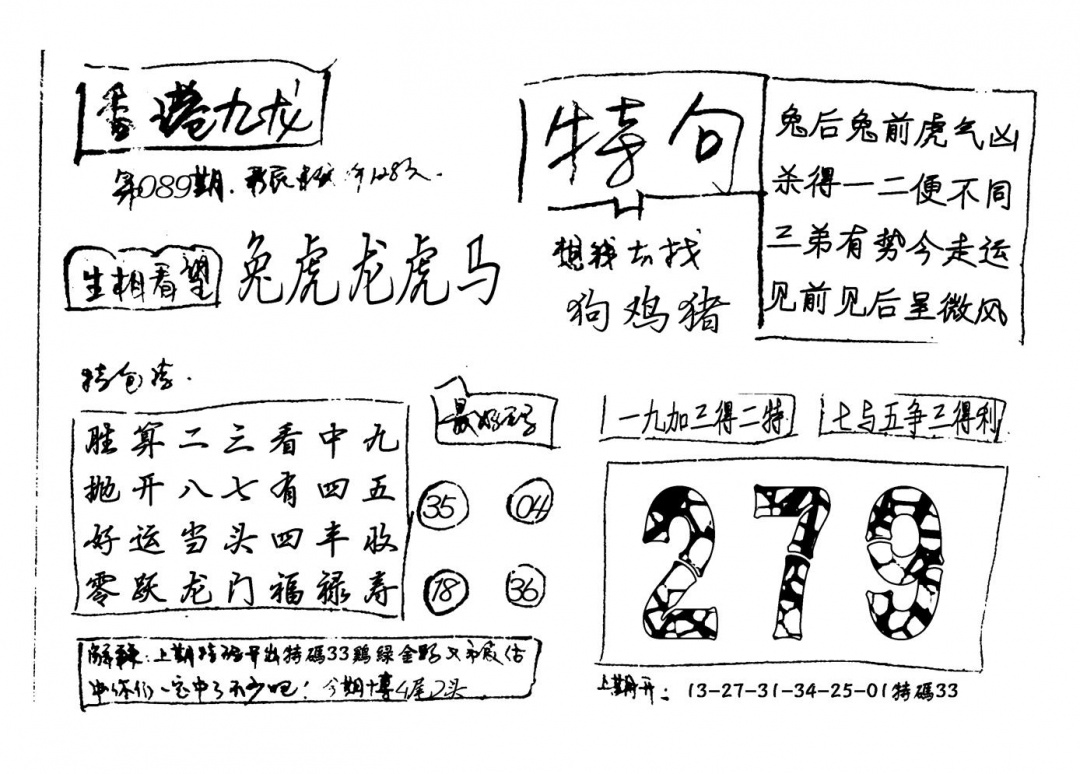 香港九龙
第089期.
生相看望
兔虎龙虎马
特句
想我去找
狗鸡猪
兔后兔前虎气凶
杀得一二便不同
三弟有势今走运
见前见后呈微风
胜算二三看中九
抛开八七有四五
好运当头四丰收
零跃龙门福禄寿
35 04
18 36
一九加三得二特
七与五争三得利
279
解释:上期特码开出特碼33鷄綠金
中你们一定中了不少吧!今期博4尾2头
上期开: 13-27-31-34-25-01特碼33